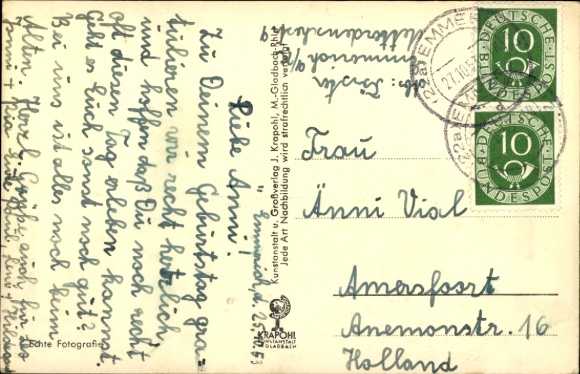 Emmerich, d. 25.10.53
Liebe Änni!
Zu Deinem Geburtstag gra-
tulieren wir recht herzlich
und hoffen daß Du noch recht
oft diesen Tag erleben kannst.
Geht es Euch sonst noch gut?
Bei uns ist alles noch beim
Alten. Herzl. Grüße auch für
Echte Fotografie
Kunstanstalt u. Großverlag J. Krapohl, M.-Gladbach-Rhld.
Jede Art Nachbildung wird strafrechtlich verfolgt
KRAPOHL
KUNSTANSTALT
M GLADBACH
Emmerich a/
(22a) EMMER
27.10.53
(22a) E
DEUTSCHE
10
BUNDESPOST
DEUTSCHE
10
BUNDESPOST
Frau
Änni Vial
Amersfoort
Anemonstr. 16
Holland